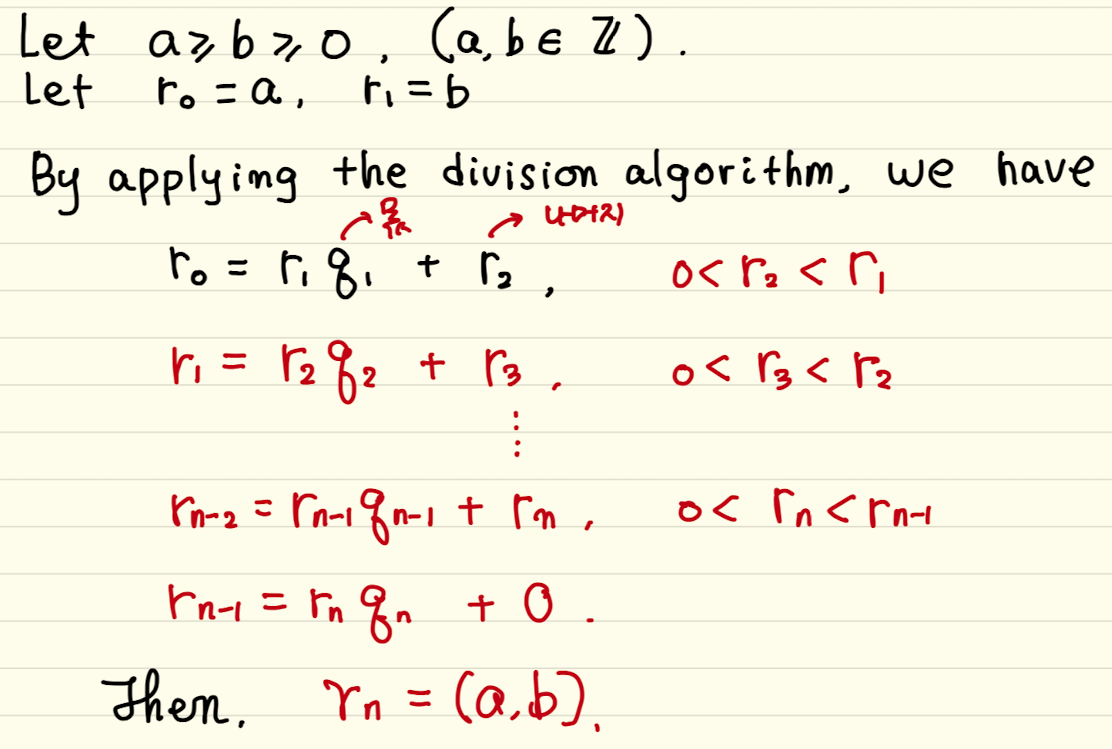 Let a ≥ b ≥ 0, (a, b ∈ ℤ).
Let r₀ = a, r₁ = b
By applying the division algorithm, we have
몫 나머지
r₀ = r₁q₁ + r₂, 0 < r₂ < r₁
r₁ = r₂q₂ + r₃, 0 < r₃ < r₂
⋮
rₙ₋₂ = rₙ₋₁qₙ₋₁ + rₙ, 0 < rₙ < rₙ₋₁
rₙ₋₁ = rₙqₙ + 0.
Then, rₙ = (a,b).